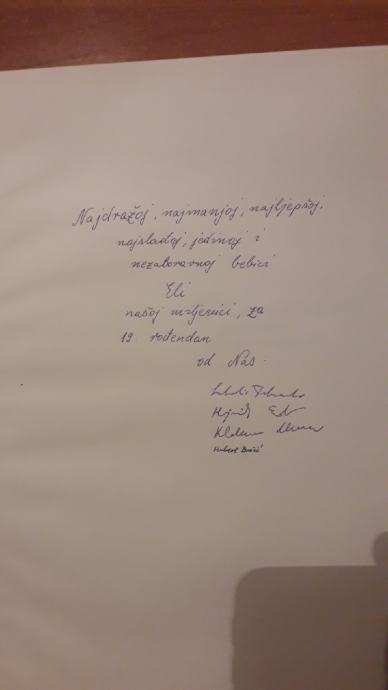 Najdražoj, najmanjoj, najljepšoj,
najslađoj, jedinoj i
nezaboravnoj bebici
Eli
našoj miljenici, za
19. rođendan
od Nas.
Hubert